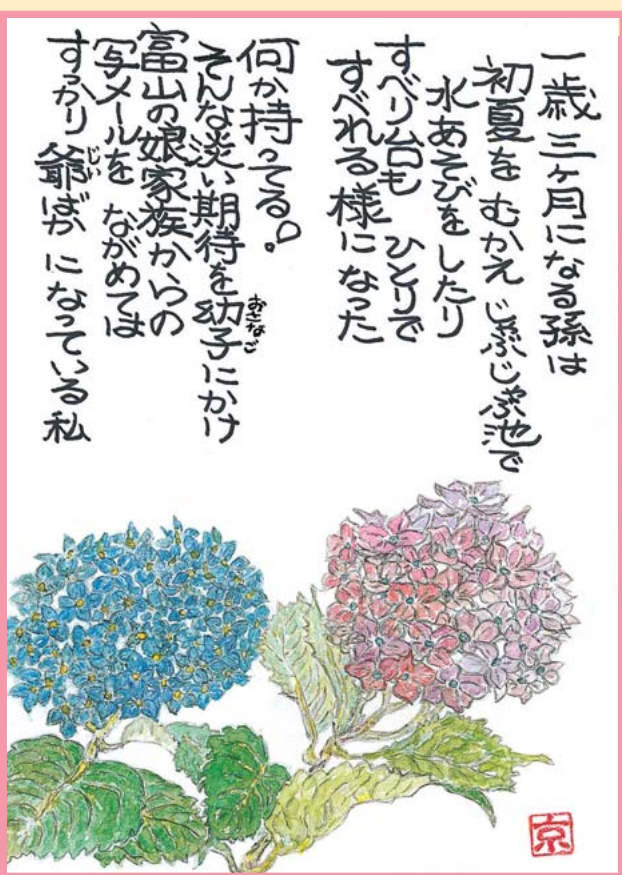 一歳三ヶ月になる孫は
初夏を むかえ じゃぶじゃぶ池で
水あそびを したり
すべり台も ひとりで
すべれる様に なった
何か持ってる?
そんな淡い期待を幼子にかけ
おさなご
富山の娘家族からの
写メールを ながめては
すっかり爺ばか になっている私
じい
京